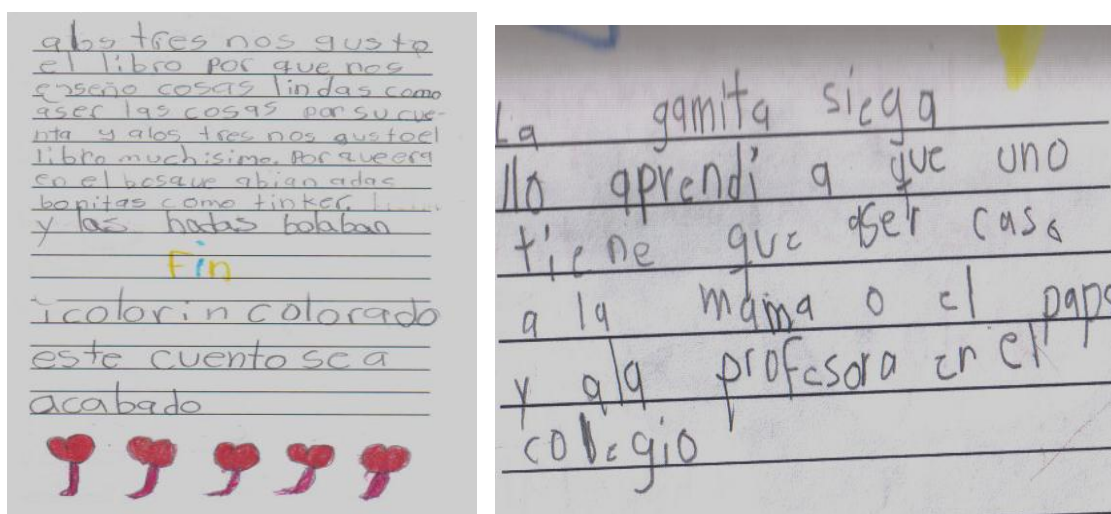 alos tres nos gusto
el libro por que nos
enseño cosas lindas como
aser las cosas por su cue-
nta y alos tres nos gustoel
libro muchisimo. Por que era
en el bosque abian adas
bonitas como tinker.
y las hadas bolaban
Fin
icolorin colorado
este cuento se a
acabado
La gamita siega
llo aprendi a que uno
tiene que aser caso
a la mama o el papa
y ala profesora en el
colegio